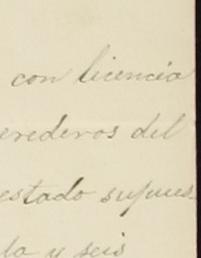 con licencia
erederos del
estado supues
la y seis